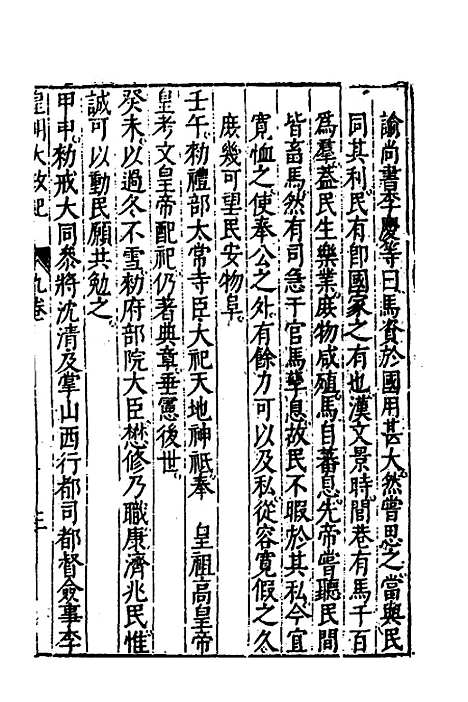 諭尚書李慶等曰馬資於國用甚大然嘗思之當與民
同其利民有卽國家之有也漢文景時閭巷有馬千百
爲羣蓋民生樂業庶物咸殖馬自蕃息先帝嘗聽民間
皆畜馬然有司急于官馬孳息故民不暇於其私今宜
寬恤之使奉公之外有餘力可以及私從容寬假之久
庶幾可望民安物阜
壬午勑禮部太常寺臣大祀天地神祇奉 皇祖高皇帝
皇考文皇帝配祀仍著典章垂憲後世
癸未以過冬不雪勑府部院大臣懋修乃職康濟兆民惟
誠可以動民願共勉之
甲申勑戒大同叅將沈清及掌山西行都司都督僉事李
皇明大政記 九卷 三